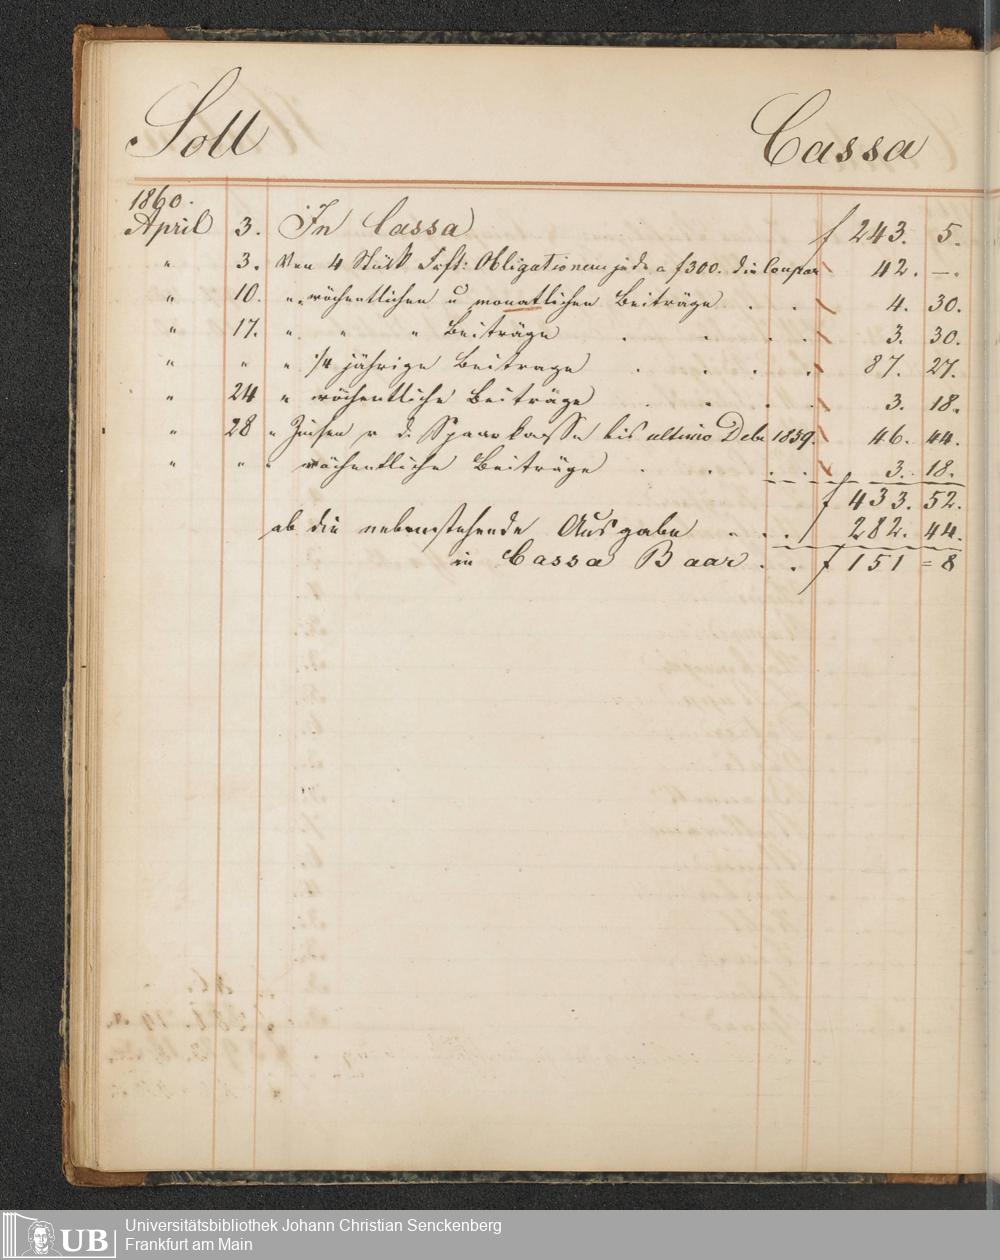 Soll Cassa
1860.
April 3. In Cassa f 243. 5.
" 3. Von 4 Stück Frft: Obligationen jede a f300. die Coupon 42. —.
" 10. " wöchentlichen u monatlichen Beiträge . . 4. 30.
" 17. " " " Beiträge . . . . 3. 30.
" " " 1/4 jährige Beitrage . . . . 87. 27.
" 24 " wöchentliche Beiträge . . . . 3. 18.
" 28 " Zinsen v d. Sparkasse bis ultimo Debr 1859. 46. 44.
" " " wöchentliche Beiträge . . . . 3. 18.
f 433. 52.
ab die nebenstehende Ausgabe . . . 282. 44.
in Cassa Baar . . f 151 = 8
UB Universitätsbibliothek Johann Christian Senckenberg
Frankfurt am Main